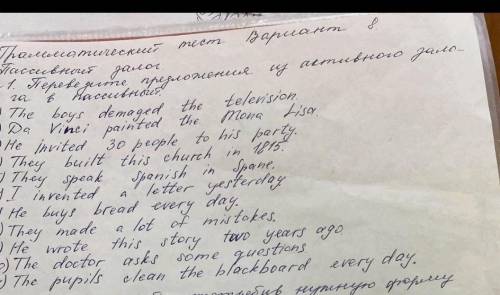 Грамматический тест Вариант 8
Пассивный залог
1. Переведите предложения из активного зало-
га в пассивный.
) The boys demaged the television.
) Da Vinci painted the Mona Lisa.
) He invited 30 people to his party.
) They built this church in 1815.
) They speak spanish in Spane.
) I invented a letter yesterday
) He buys bread every day.
) They made a lot of mistakes.
) He wrote this story two years ago
) The doctor asks some questions
) The pupils clean the blackboard every day.
нужную форму